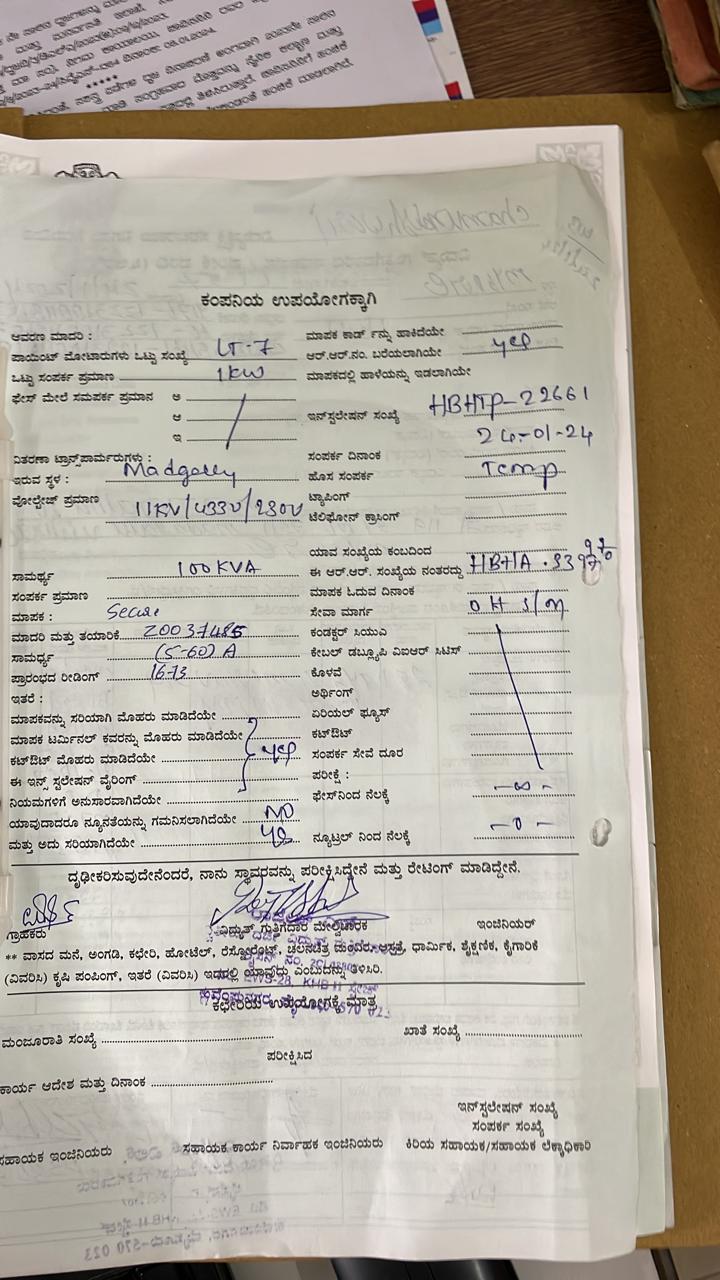 ಕಂಪನಿಯ ಉಪಯೋಗಕ್ಕಾಗಿ
ಆವರಣ ಮಾದರಿ :
ಮಾಪಕ ಕಾರ್ಡ್ ನ್ನು ಹಾಕಿದೆಯೇ
ಪಾಯಿಂಟ್ ಮೋಟಾರುಗಳು ಒಟ್ಟು ಸಂಖ್ಯೆ LT-7
ಆರ್.ಆರ್.ನಂ. ಬರೆಯಲಾಗಿಯೇ yes
ಒಟ್ಟು ಸಂಪರ್ಕ ಪ್ರಮಾಣ 1KW
ಮಾಪಕದಲ್ಲಿ ಹಾಳೆಯನ್ನು ಇಡಲಾಗಿಯೇ
ಫೇಸ್ ಮೇಲೆ ಸಮಪರ್ಕ ಪ್ರಮಾನ ಅ
ಆ
ಇ
ಇನ್‌ಸ್ಟಲೇಷನ್ ಸಂಖ್ಯೆ HBHTP-22661
24-01-24
ವಿತರಣಾ ಟ್ರಾನ್ಸ್‌ಪಾರ್ಮರುಗಳು :
ಸಂಪರ್ಕ ದಿನಾಂಕ
ಇರುವ ಸ್ಥಳ : Madgally
ಹೊಸ ಸಂಪರ್ಕ Temp
ವೋಲ್ಟೇಜ್ ಪ್ರಮಾಣ 11KV/433V/230V
ಟ್ಯಾಪಿಂಗ್
ಟೆಲಿಫೋನ್ ಕ್ರಾಸಿಂಗ್
ಯಾವ ಸಂಖ್ಯೆಯ ಕಂಬದಿಂದ
ಸಾಮರ್ಥ್ಯ 100KVA
ಈ ಆರ್.ಆರ್. ಸಂಖ್ಯೆಯ ನಂತರದ್ದು
ಸಂಪರ್ಕ ಪ್ರಮಾಣ
ಮಾಪಕ ಓದುವ ದಿನಾಂಕ
ಮಾಪಕ : Secure
ಸೇವಾ ಮಾರ್ಗ OH S/M
ಮಾದರಿ ಮತ್ತು ತಯಾರಿಕೆ 20037485
ಕಂಡಕ್ಟರ್ ಸಿಯುಎ
ಸಾಮರ್ಧ್ಯ (5-60)A
ಕೇಬಲ್ ಡಬ್ಲ್ಯೂಪಿ ವಿಐಆರ್ ಸಿಟಿಸ್
ಪ್ರಾರಂಭದ ರೀಡಿಂಗ್ 16-73
ಕೊಳವೆ
ಇತರೆ :
ಅರ್ಥಿಂಗ್
ಮಾಪಕವನ್ನು ಸರಿಯಾಗಿ ಮೊಹರು ಮಾಡಿದೆಯೇ
ಏರಿಯಲ್ ಫ್ಯೂಸ್
ಮಾಪಕ ಟರ್ಮಿನಲ್ ಕವರನ್ನು ಮೊಹರು ಮಾಡಿದೆಯೇ
ಕಟ್‌ಔಟ್
ಕಟ್‌ಔಟ್ ಮೊಹರು ಮಾಡಿದೆಯೇ yes
ಸಂಪರ್ಕ ಸೇವೆ ದೂರ
ಈ ಇನ್ಸ್ ಸ್ಟಲೇಷನ್ ವೈರಿಂಗ್
ಪರೀಕ್ಷೆ :
ನಿಯಮಗಳಿಗೆ ಅನುಸಾರವಾಗಿದೆಯೇ
ಫೇಸ್‌ನಿಂದ ನೆಲಕ್ಕೆ -∞-
ಯಾವುದಾದರೂ ನ್ಯೂನತೆಯನ್ನು ಗಮನಿಸಲಾಗಿದೆಯೇ NO
ಮತ್ತು ಅದು ಸರಿಯಾಗಿದೆಯೇ yes
ನ್ಯೂಟ್ರಲ್ ನಿಂದ ನೆಲಕ್ಕೆ -0-
ದೃಢೀಕರಿಸುವುದೇನೆಂದರೆ, ನಾನು ಸ್ಥಾವರವನ್ನು ಪರೀಕ್ಷಿಸಿದ್ದೇನೆ ಮತ್ತು ರೇಟಿಂಗ್ ಮಾಡಿದ್ದೇನೆ.
ಗ್ರಾಹಕರು ವಿದ್ಯುತ್ ಗುತ್ತಿಗೆದಾರ ಮೇಲ್ವಿಚಾರಕ ಇಂಜಿನಿಯರ್
** ವಾಸದ ಮನೆ, ಅಂಗಡಿ, ಕಛೇರಿ, ಹೋಟೆಲ್, ರೆಸ್ಟೋರೆಂಟ್, ಚಲನಚಿತ್ರ ಮಂದಿರ, ಆಸ್ಪತ್ರೆ, ಧಾರ್ಮಿಕ, ಶೈಕ್ಷಣಿಕ, ಕೈಗಾರಿಕೆ
(ವಿವರಿಸಿ) ಕೃಷಿ ಪಂಪಿಂಗ್, ಇತರೆ (ವಿವರಿಸಿ) ಇದರಲ್ಲಿ ಯಾವುದು ಎಂಬುದನ್ನು ತಿಳಿಸಿರಿ.
ಕಛೇರಿಯ ಉಪಯೋಗಕ್ಕೆ ಮಾತ್ರ
ಮಂಜೂರಾತಿ ಸಂಖ್ಯೆ
ಖಾತೆ ಸಂಖ್ಯೆ
ಪರೀಕ್ಷಿಸಿದ
ಕಾರ್ಯ ಆದೇಶ ಮತ್ತು ದಿನಾಂಕ
ಇನ್‌ಸ್ಟಲೇಷನ್ ಸಂಖ್ಯೆ
ಸಂಪರ್ಕ ಸಂಖ್ಯೆ
ಸಹಾಯಕ ಇಂಜಿನಿಯರು ಸಹಾಯಕ ಕಾರ್ಯ ನಿರ್ವಾಹಕ ಇಂಜಿನಿಯರು ಕಿರಿಯ ಸಹಾಯಕ/ಸಹಾಯಕ ಲೆಕ್ಕಾಧಿಕಾರಿ